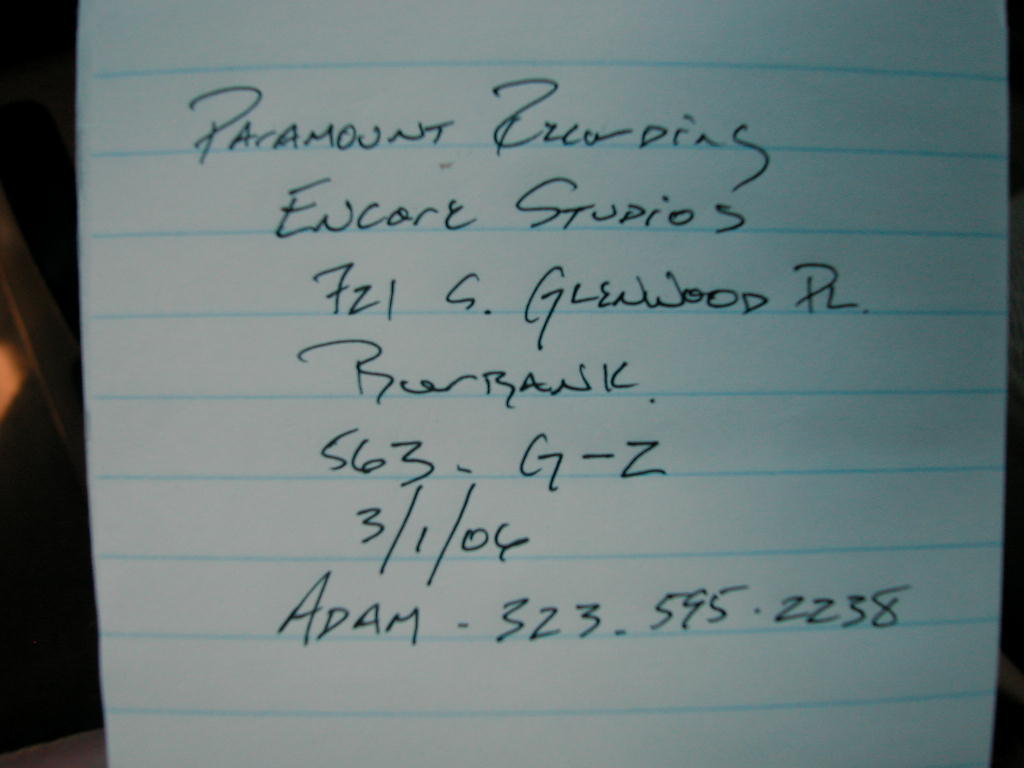 Paramount Recording
Encore Studios
721 S. Glenwood Pl.
Burbank.
563. G-Z
3/1/06
Adam - 323.595.2238